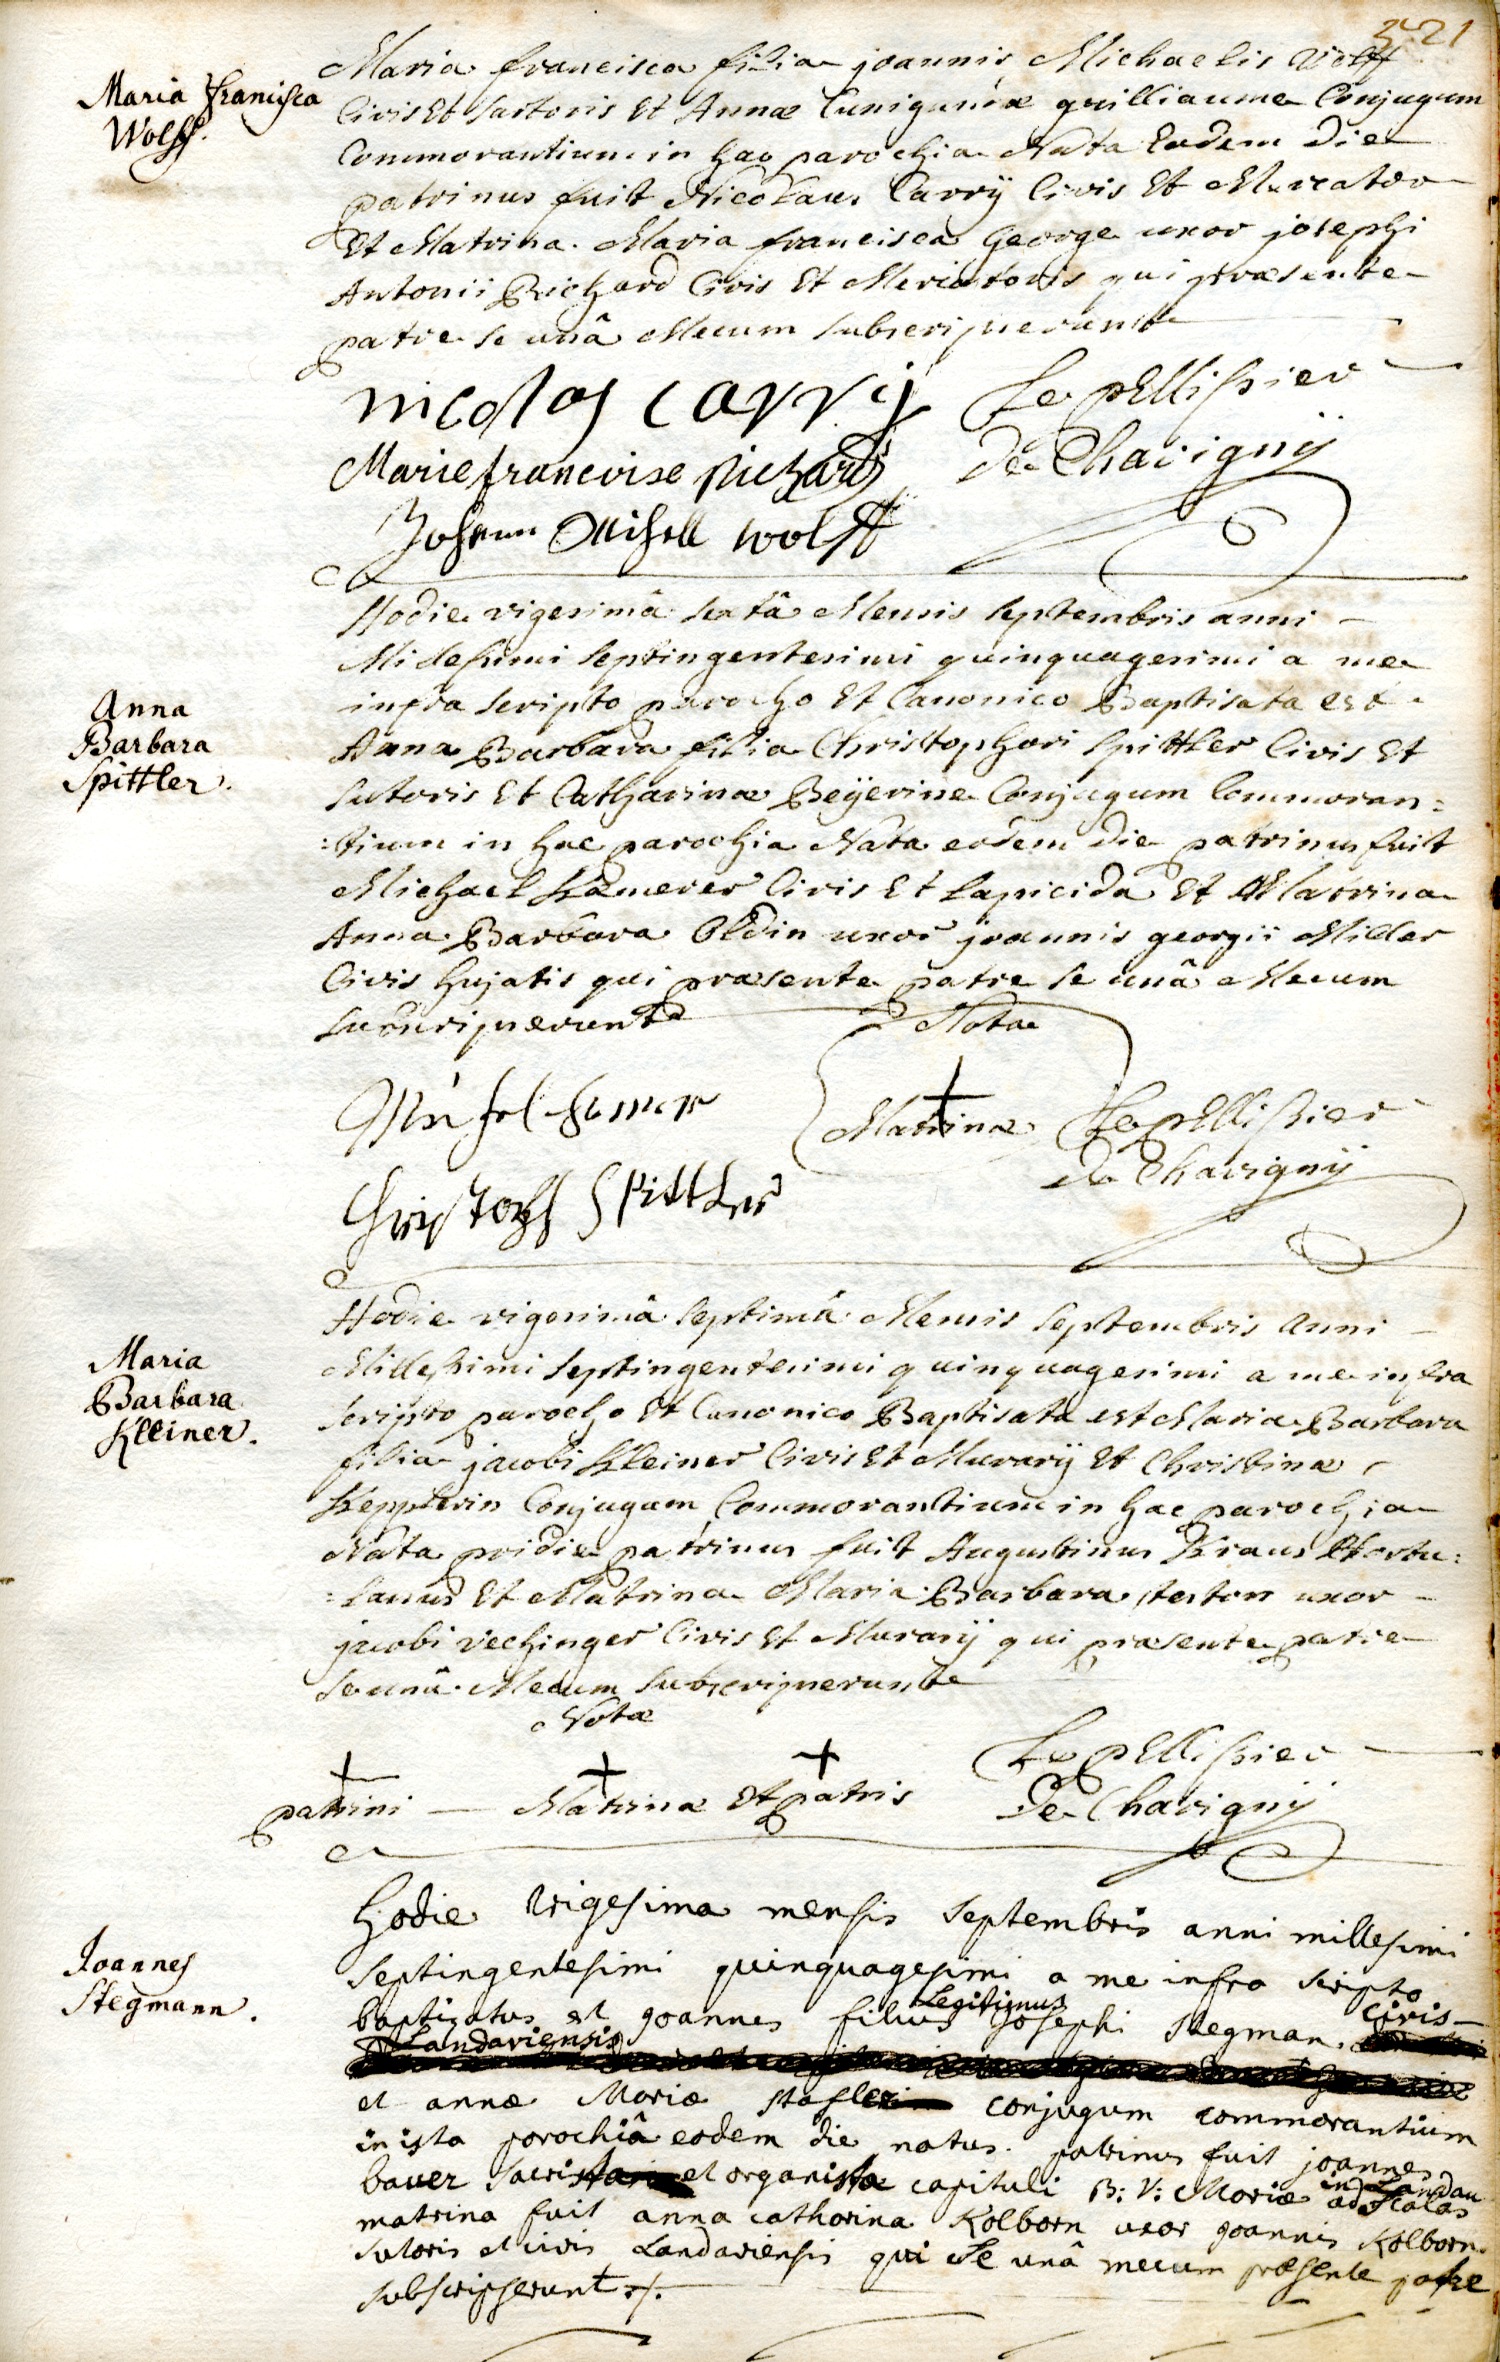 321
Maria Francisca
Wolff.
Maria francisca filia joannis Michaelis Wolff
Civis Et Sartoris Et Annæ Cunigundæ guilliaume Conjugum
Commorantium in hac parochia Nata Eadem die
patrinus fuit Nicolaus Carrÿ Civis Et Mercator
Et Matrina Maria francisca George uxor josephi
Antonii Richard Civis Et Mercatoris qui præsente
patre se unâ Mecum subscripserunt
nicolas carrij
Le pellissier
Marie francoise Richard
De Chavignÿ
Johann Michell Wolff
Anna
Barbara
Spittler.
Hodie vigesimâ sextâ Mensis septembris anni
Millesimi septingentesimi quinquagesimi a me
infra scripto parocho Et Canonico Baptisata est
Anna Barbara filia Christophori Spittler Civis Et
sutoris Et Catharinæ Beÿerine Conjugum Commoran=
=tium in hac parochia Nata eodem die patrinus fuit
Michael Kamerer Civis Et Lapicida Et Matrina
Anna Barbara Oldin uxor joannis georgii Miller
Civis hujatis qui præsente patre se unâ Mecum
subscripserunt
Nota
Matrinæ
Le pellissier
de Chavignÿ
Christoph Spittler
Maria
Barbara
Kleiner.
Hodie vigesimâ septimâ Mensis septembris Anni
Millessimi septingentesimi quinquagesimi a me infra
scripto parocho Et Canonico Baptisata est Maria Barbara
filia jacobi Kleiner Civis Et Murarÿ Et Christinæ
Kepplerin Conjugum Commorantium in hac parochia
Nata pridie patrinus fuit Augustinus Kraus Hortu=
=lanus Et Matrina Maria Barbara uxor
jacobi Vechinger Civis Et Murarÿ qui præsente patre
se unâ Mecum subscripserunt
Notæ
patrini — Matrinæ Et patris
Le pellissier
De Chavignÿ
Joannes
Stegmann.
Hodie Vigesima mensis Septembris anni millesimi
septingentesimi quinquagesimi a me infra scripto
baptizatus est Joannes filius Legitimus Josephi Stegman. Civis
Landaviensis
et annæ Mariæ conjugum commorantium
in ista parochiâ eodem die natus. patrinus fuit joannes
bauer et organista capituli B: V: Mariæ ad Scalas in Landau
matrina fuit anna catharina Kolborn uxor Joannis Kolborn
sutoris et civis Landaviensis qui se unâ mecum præsente patre
subscripserunt